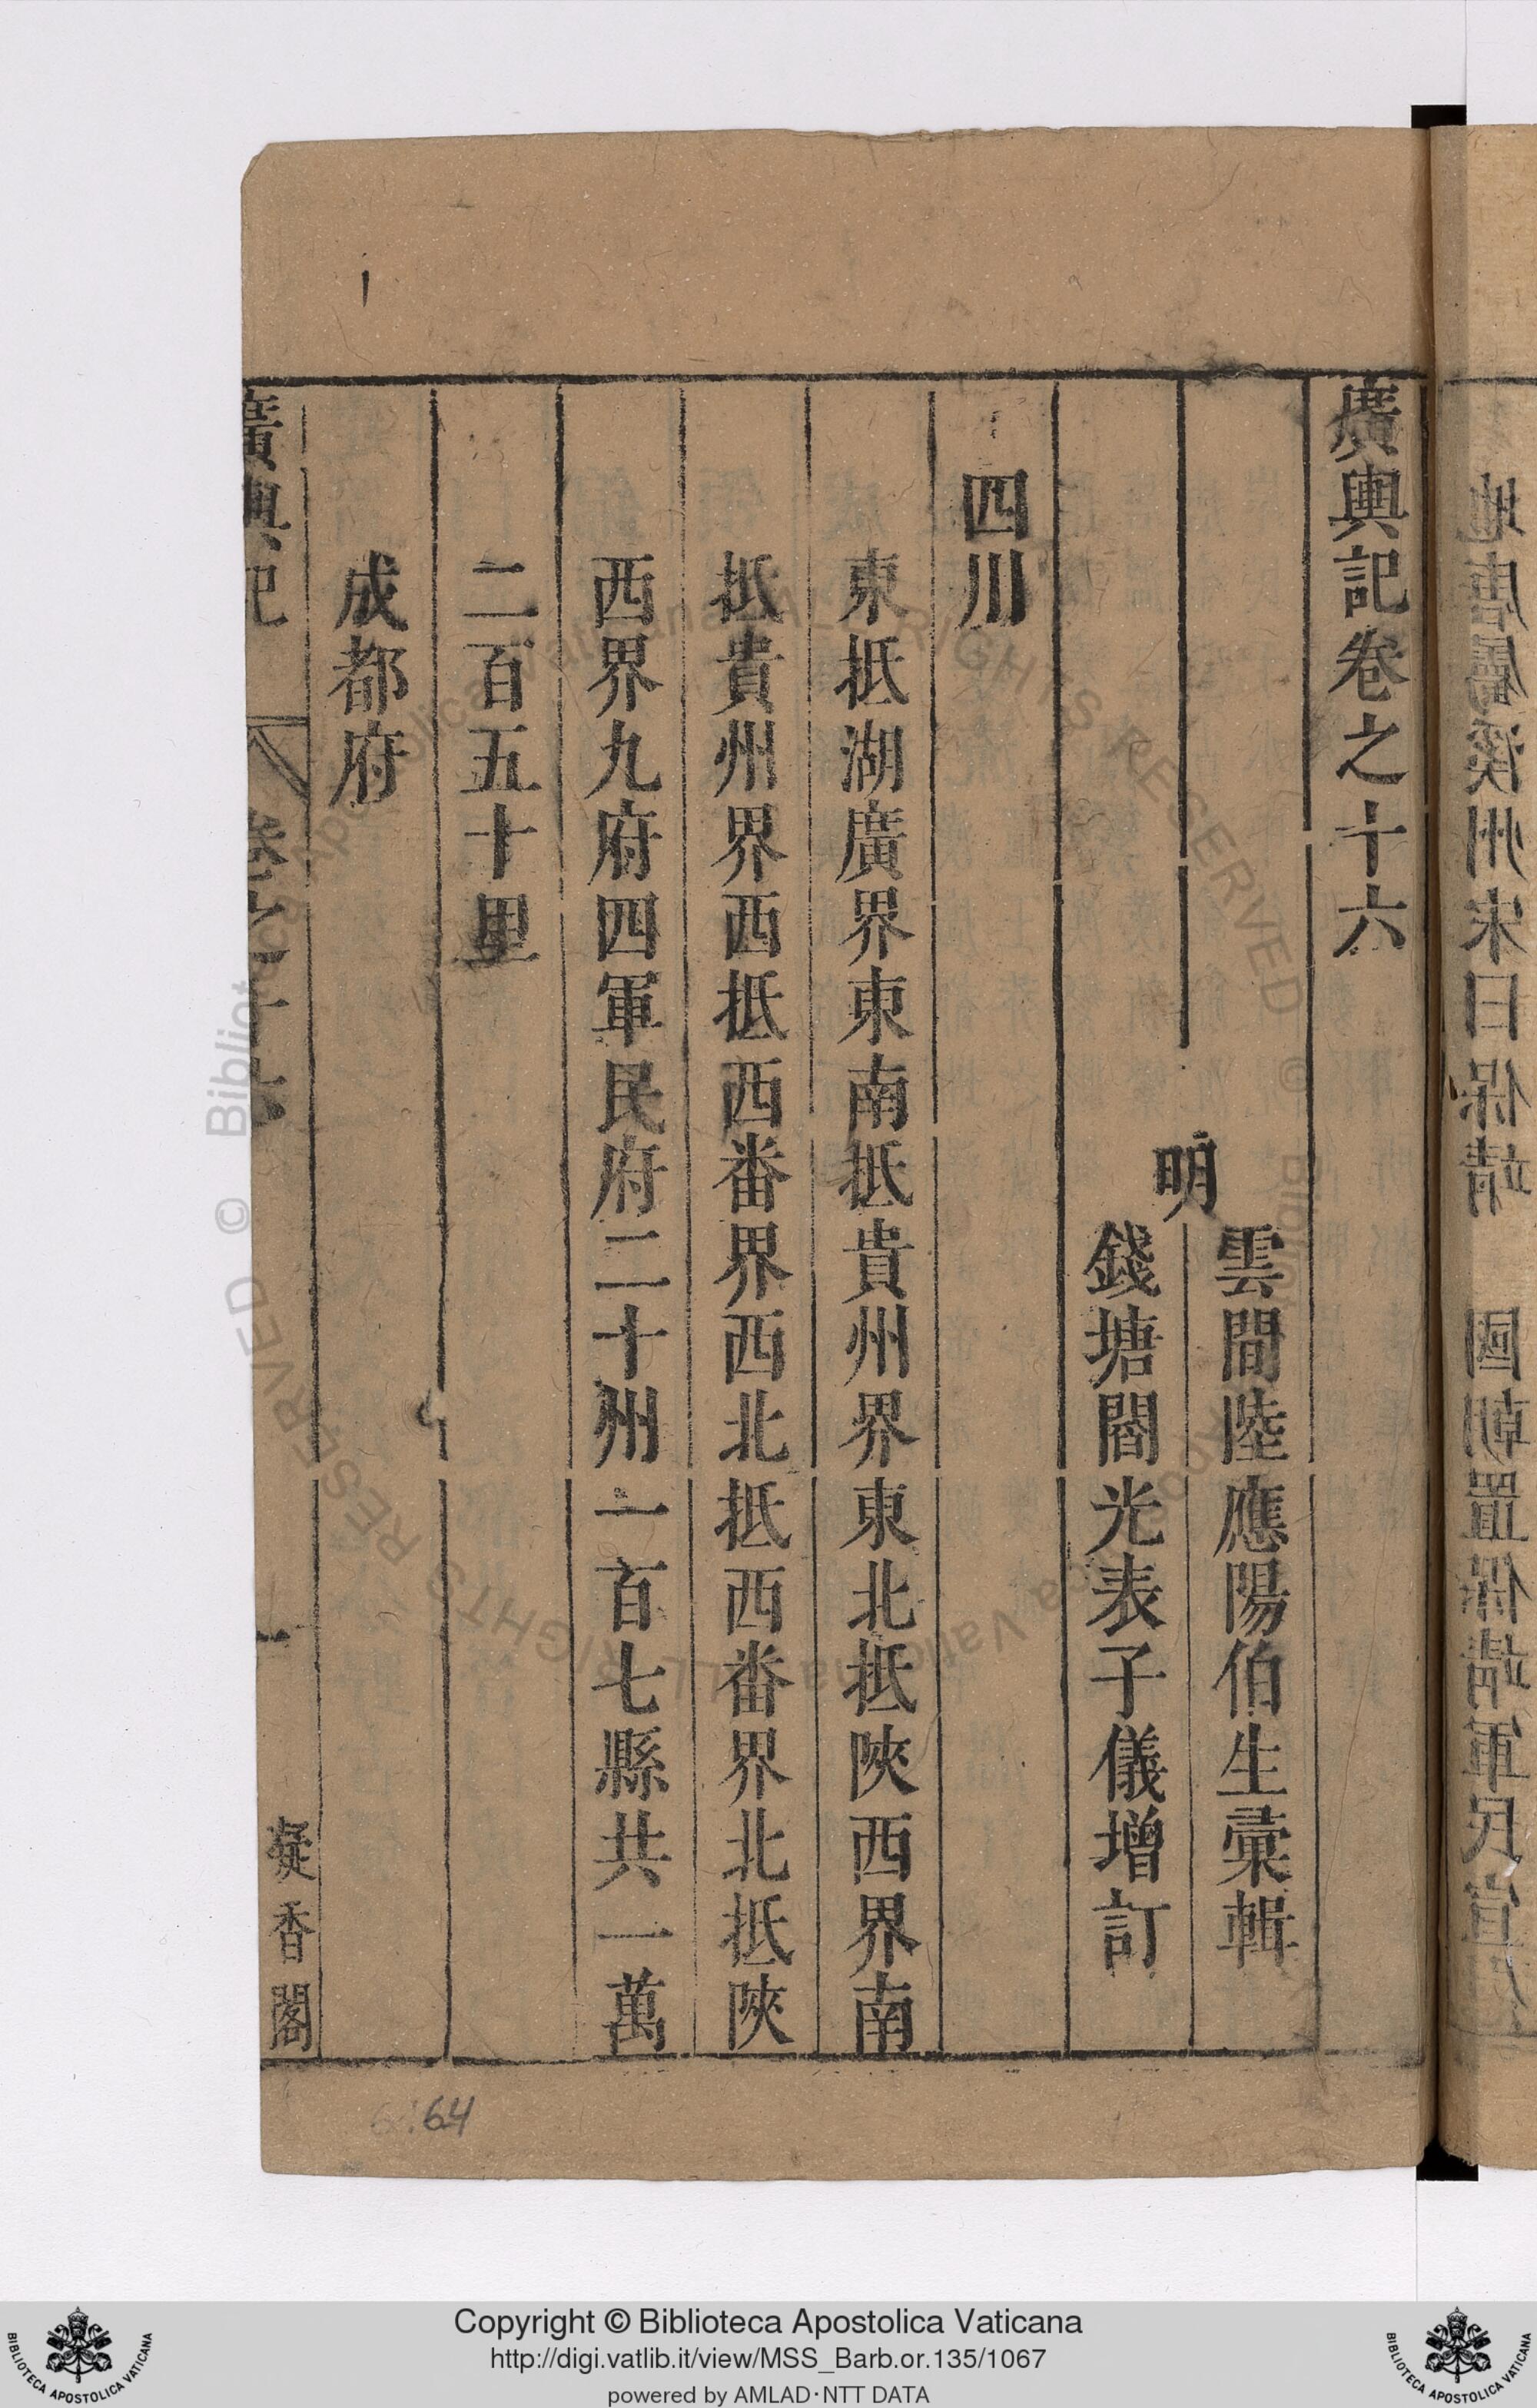 廣輿記卷之十六
明
雲間陸應陽伯生彙輯
錢塘閻光表子儀增訂
四川
東抵湖廣界東南抵貴州界東北抵陜西界南
抵貴州界西抵西番界西北抵西番界北抵陜
西界九府四軍民府二十州一百七縣共一萬
二百五十里
成都府
廣輿記 卷之十六 一 凝香閣
64
地唐屬溪州宋曰保靖 國朝置保靖軍民宣
Copyright © Biblioteca Apostolica Vaticana
http://digi.vatlib.it/view/MSS_Barb.or.135/1067
powered by AMLAD·NTT DATA
BIBLIOTECA APOSTOLICA VATICANA
BIBLIOTECA APOSTOLICA VATICANA